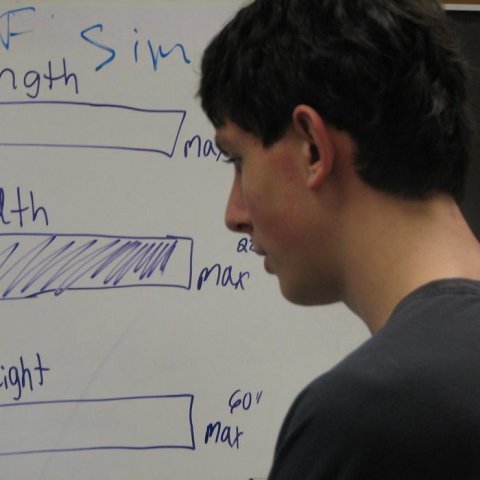 F. Sim
ngth
max
dth
28
max
ight
60"
max